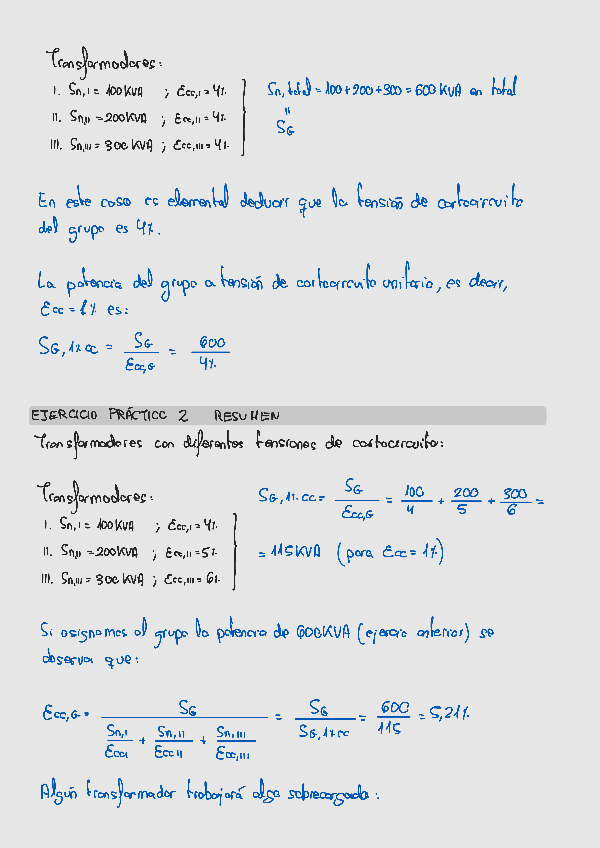 Transformadores:
I. Sn,I = 100 KVA ; Ecc,I = 4%
II. Sn,II = 200 KVA ; Ecc,II = 4%
III. Sn,III = 300 KVA ; Ecc,III = 4%
Sn, total = 100+200+300 = 600 KVA en total
"
SG
En este caso es elemental deducir que la tensión de cortocircuito
del grupo es 4%.
La potencia del grupo a tensión de cortocircuito unitario, es decir,
Ecc = 1% es:
SG, 1% cc = SG / Ecc,G = 600 / 4%
EJERCICIO PRÁCTICO 2 RESUMEN
Transformadores con diferentes tensiones de cortocircuito:
Transformadores:
I. Sn,I = 100 KVA ; Ecc,I = 4%
II. Sn,II = 200 KVA ; Ecc,II = 5%
III. Sn,III = 300 KVA ; Ecc,III = 6%
SG, 1% cc = SG / Ecc,G = 100 / 4 + 200 / 5 + 300 / 6 =
= 115 KVA (para Ecc = 1%)
Si asignamos al grupo la potencia de 600KVA (ejercicio anterior) se
observa que:
Ecc,G = SG / (Sn,I / EccI + Sn,II / Ecc II + Sn,III / Ecc,III) = SG / SG,1% cc = 600 / 115 = 5,21%
Algún transformador trabajará algo sobrecargado: